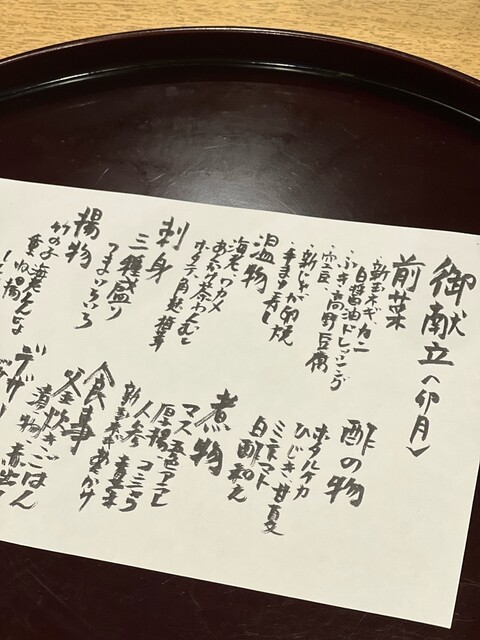 御献立〈卯月〉
前菜
・新玉ネギ カニ
白醤油ドレッシング
・ふき 高野豆腐
・空豆
・新じゃが 卵焼
・手まり寿し
温物
海老 ワカメ
あみがさ茶わんむし
ホタテ 角麸 椎茸
刺身
三種盛り
つまいろいろ
揚物
竹の子 海老しんじょ
重ね揚
酢の物
ホタルイカ
ひじき 甘夏
ミニトマト
白酢和え
煮物
マス
厚揚
人参
新玉ネギあんかけ
食事
釜炊きごはん
漬物 赤出し
デザート